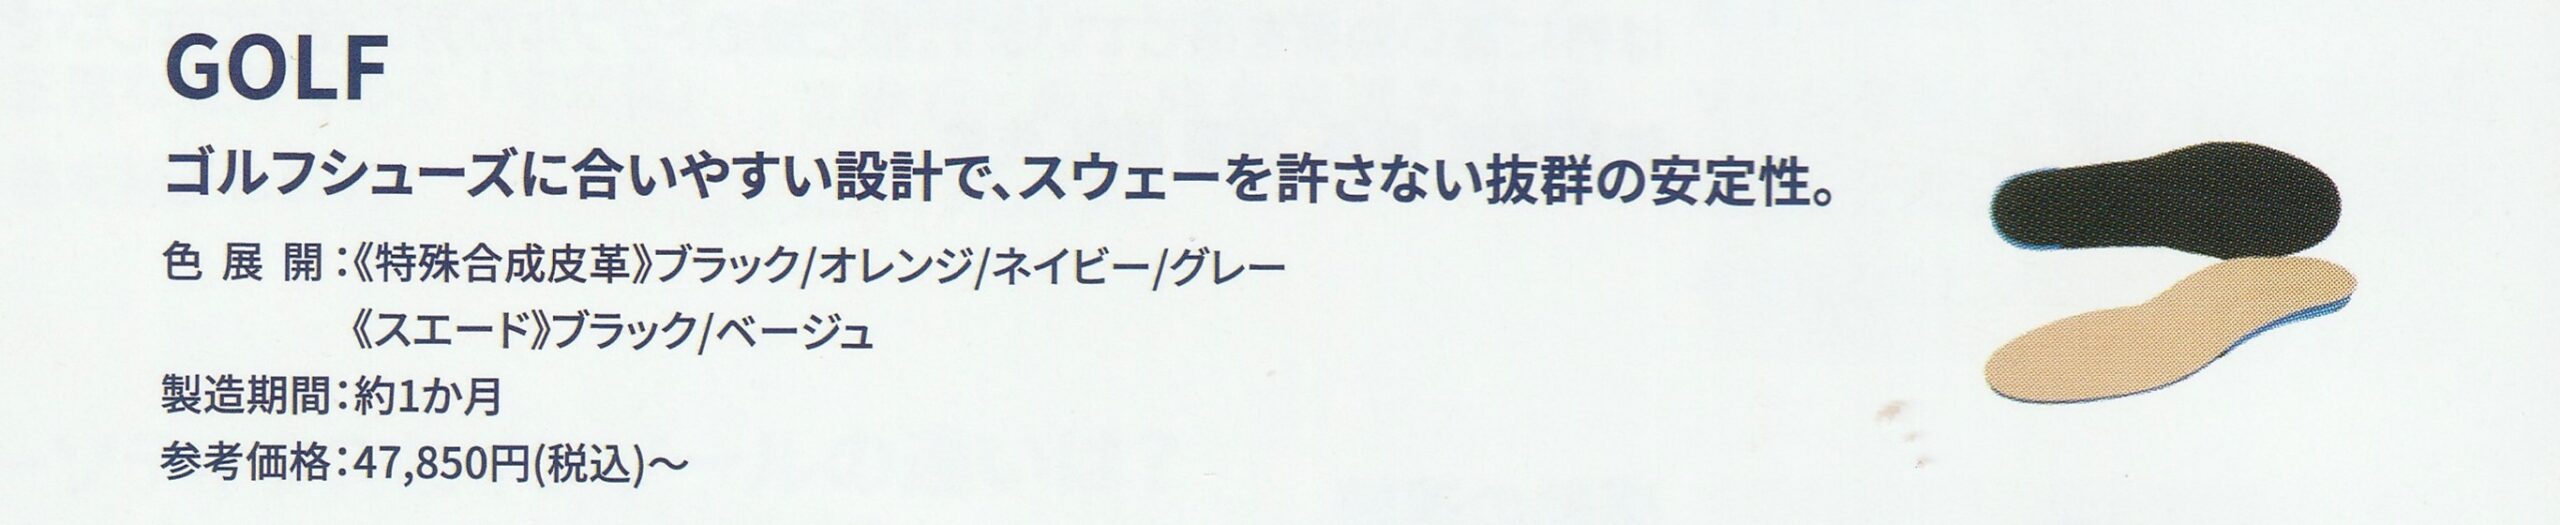 GOLF
ゴルフシューズに合いやすい設計で、スウェーを許さない抜群の安定性。
色展開：《特殊合成皮革》ブラック/オレンジ/ネイビー/グレー
《スエード》ブラック/ベージュ
製造期間：約1か月
参考価格：47,850円(税込)～